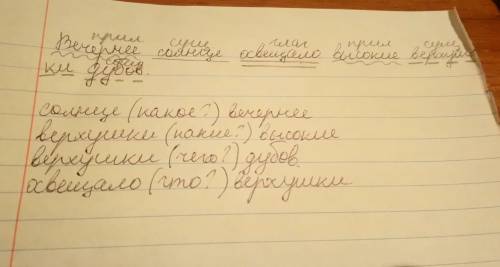 прил сущ глаг прил сущ
Вечернее солнце освещало высокие верхуш-
сущ
ки дубов.
солнце (какое?) вечернее
верхушки (какие?) высокие
верхушки (чего?) дубов.
освещало (что?) верхушки